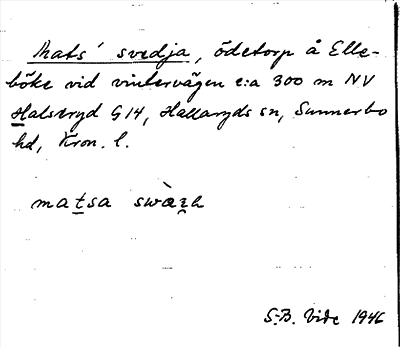 Mats' svedja, ödetorp å Elle-
böke vid vintervägen c:a 300 m NV
Halseryd G14, Hallaryds sn, Sunnerbo
hd, Kron. l.
matsa swàꝛh
S.-B. Vide 1946